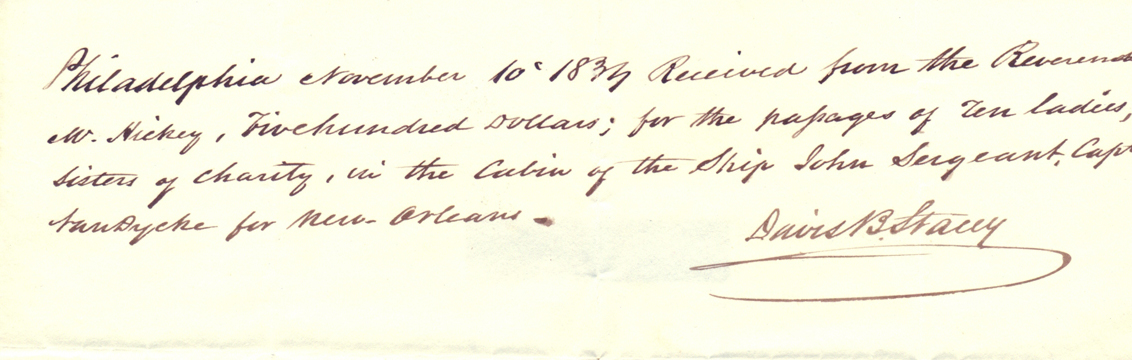 Philadelphia November 10th 1834 Received from the Reverend
Mr. Hickey, Fivehundred Dollars; for the passages of Ten ladies,
sisters of charity, in the Cabin of the Ship John Sergeant, Capt
VanDycke for New-Orleans
Davis B. Stacey